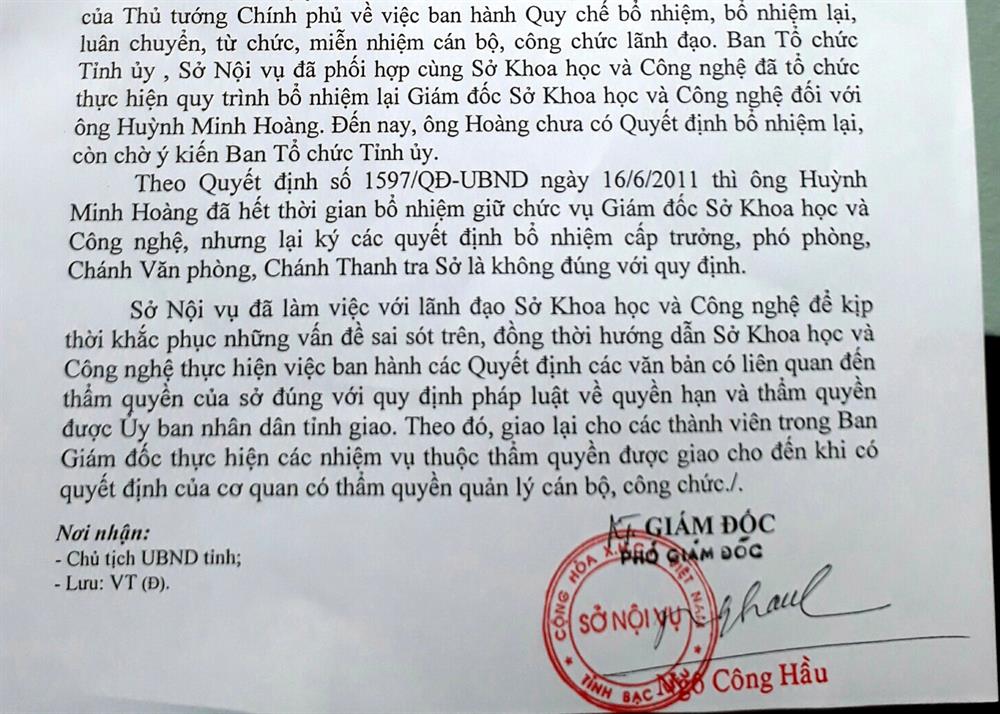 của Thủ tướng Chính phủ về việc ban hành Quy chế bổ nhiệm, bổ nhiệm lại,
luân chuyển, từ chức, miễn nhiệm cán bộ, công chức lãnh đạo. Ban Tổ chức
Tỉnh ủy , Sở Nội vụ đã phối hợp cùng Sở Khoa học và Công nghệ đã tổ chức
thực hiện quy trình bổ nhiệm lại Giám đốc Sở Khoa học và Công nghệ đối với
ông Huỳnh Minh Hoàng. Đến nay, ông Hoàng chưa có Quyết định bổ nhiệm lại,
còn chờ ý kiến Ban Tổ chức Tỉnh ủy.
Theo Quyết định số 1597/QĐ-UBND ngày 16/6/2011 thì ông Huỳnh
Minh Hoàng đã hết thời gian bổ nhiệm giữ chức vụ Giám đốc Sở Khoa học và
Công nghệ, nhưng lại ký các quyết định bổ nhiệm cấp trưởng, phó phòng,
Chánh Văn phòng, Chánh Thanh tra Sở là không đúng với quy định.
Sở Nội vụ đã làm việc với lãnh đạo Sở Khoa học và Công nghệ để kịp
thời khắc phục những vấn đề sai sót trên, đồng thời hướng dẫn Sở Khoa học và
Công nghệ thực hiện việc ban hành các Quyết định các văn bản có liên quan đến
thẩm quyền của sở đúng với quy định pháp luật về quyền hạn và thẩm quyền
được Ủy ban nhân dân tỉnh giao. Theo đó, giao lại cho các thành viên trong Ban
Giám đốc thực hiện các nhiệm vụ thuộc thẩm quyền được giao cho đến khi có
quyết định của cơ quan có thẩm quyền quản lý cán bộ, công chức./.
Nơi nhận:
- Chủ tịch UBND tỉnh;
- Lưu: VT (Đ).
KT. GIÁM ĐỐC
PHÓ GIÁM ĐỐC
CỘNG HÒA X.H.C.N VIỆT NAM
SỞ NỘI VỤ
TỈNH BẠC LIÊU
Ngô Công Hầu